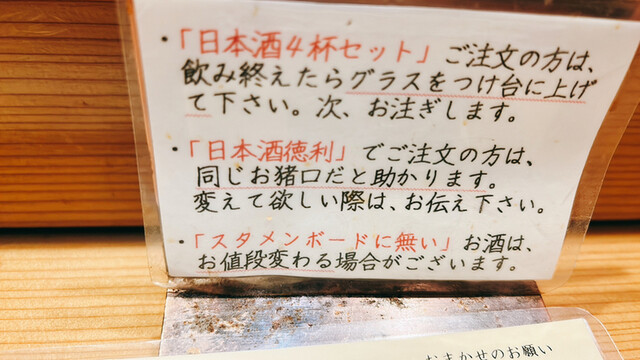 ・「日本酒4杯セット」ご注文の方は、
飲み終えたらグラスをつけ台に上げ
て下さい。次、お注ぎします。
・「日本酒徳利」でご注文の方は、
同じお猪口だと助かります。
変えて欲しい際は、お伝え下さい。
・「スタメンボードに無い」お酒は、
お値段変わる場合がございます。
おまかせのお願い